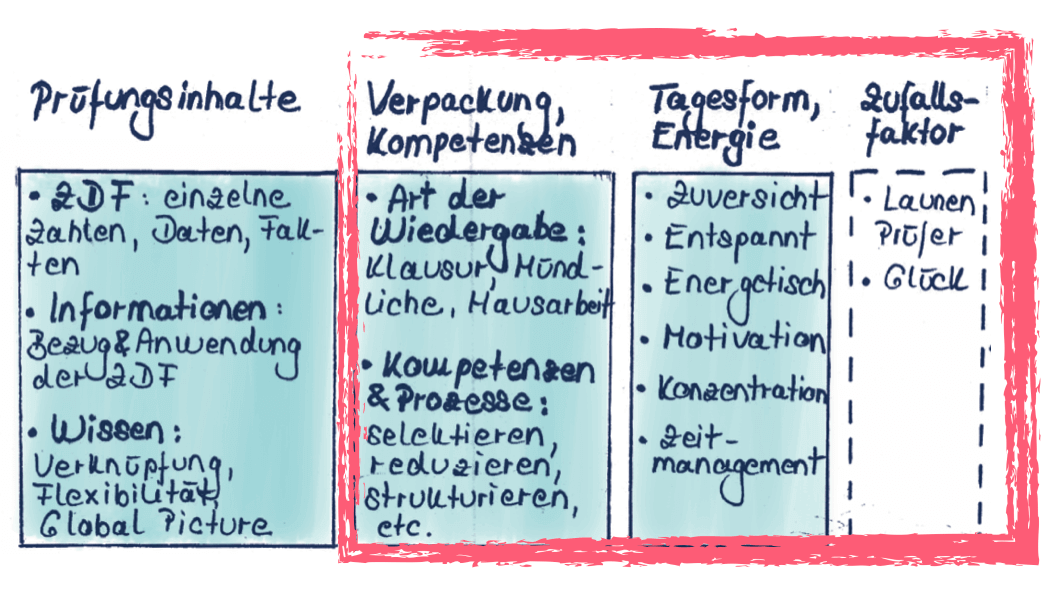 Prüfungsinhalte
• ZDF: einzelne
Zahlen, Daten, Fak-
ten
• Informationen:
Bezug & Anwendung
der ZDF
• Wissen:
Verknüpfung,
Flexibilität,
Global Picture
Verpackung,
Kompetenzen
• Art der
Wiedergabe:
Klausur, Münd-
liche, Hausarbeit
• Kompetenzen
& Prozesse:
selektieren,
reduzieren,
strukturieren,
etc.
Tagesform,
Energie
• Zuversicht
• Entspannt
• Energetisch
• Motivation
• Konzentration
• Zeit-
management
Zufalls-
faktor
• Launen
Prüfer
• Glück